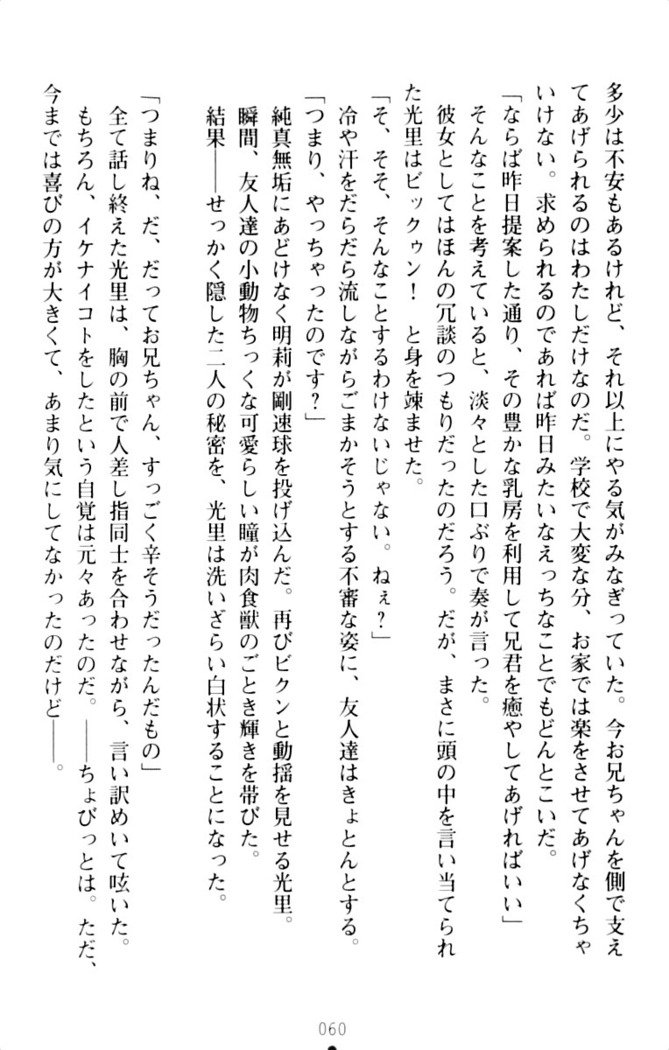 多少は不安もあるけれど、それ以上にやる気がみなぎっていた。今お兄ちゃんを側で支え
てあげられるのはわたしだけなのだ。学校で大変な分、お家では楽をさせてあげなくちゃ
いけない。求められるのであれば昨日みたいなえっちなことでもどんとこいだ。
「ならば昨日提案した通り、その豊かな乳房を利用して兄君を癒やしてあげればいい」
そんなことを考えていると、淡々とした口ぶりで奏が言った。
彼女としてはほんの冗談のつもりだったのだろう。だが、まさに頭の中を言い当てられ
た光里はビックゥン！　と身を竦ませた。
「そ、そそ、そんなことするわけないじゃない。ねぇ？」
冷や汗をだらだら流しながらごまかそうとする不審な姿に、友人達はきょとんとする。
「つまり、やっちゃったのです？」
純真無垢にあどけなく明莉が剛速球を投げ込んだ。再びビクンと動揺を見せる光里。
瞬間、友人達の小動物ちっくな可愛らしい瞳が肉食獣のごとき輝きを帯びた。
結果――せっかく隠した二人の秘密を、光里は洗いざらい白状することになった。
「つまりね、だ、だってお兄ちゃん、すっごく辛そうだったんだもの」
全て話し終えた光里は、胸の前で人差し指同士を合わせながら、言い訳めいて呟いた。
もちろん、イケナイコトをしたという自覚は元々あったのだ。――ちょびっとは。ただ、
今までは喜びの方が大きくて、あまり気にしてなかったのだけど――。
060